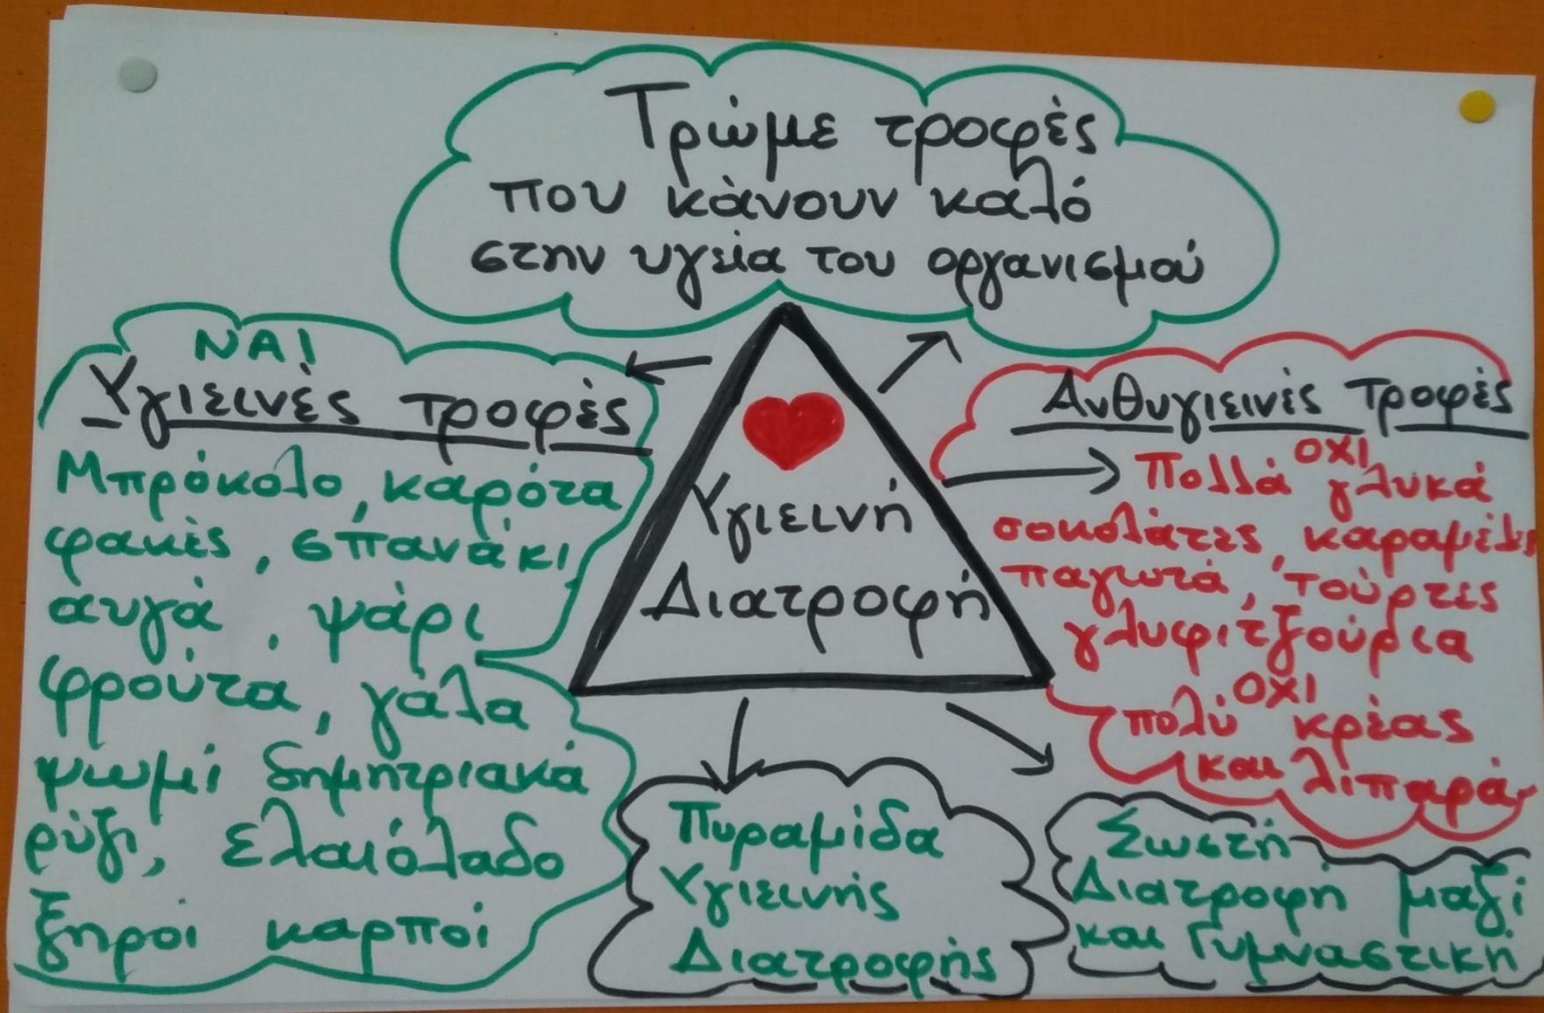 Τρώμε τροφές
που κάνουν καλό
στην υγεία του οργανισμού
ΝΑΙ
Υγιεινές τροφές
Μπρόκολο, καρότα
φακές, σπανάκι
αυγά, ψάρι
φρούτα, γάλα
ψωμί δημητριακά
ρύζι, ελαιόλαδο
ξηροί καρποί
Υγιεινή
Διατροφή
Ανθυγιεινές τροφές
ΟΧΙ
Πολλά γλυκά
σοκολάτες, καραμέλες
παγωτά, τούρτες
γλυφιτζούρια
ΟΧΙ
πολύ κρέας
και λιπαρά
Πυραμίδα
Υγιεινής
Διατροφής
Σωστή
Διατροφή μαζί
και Γυμναστική